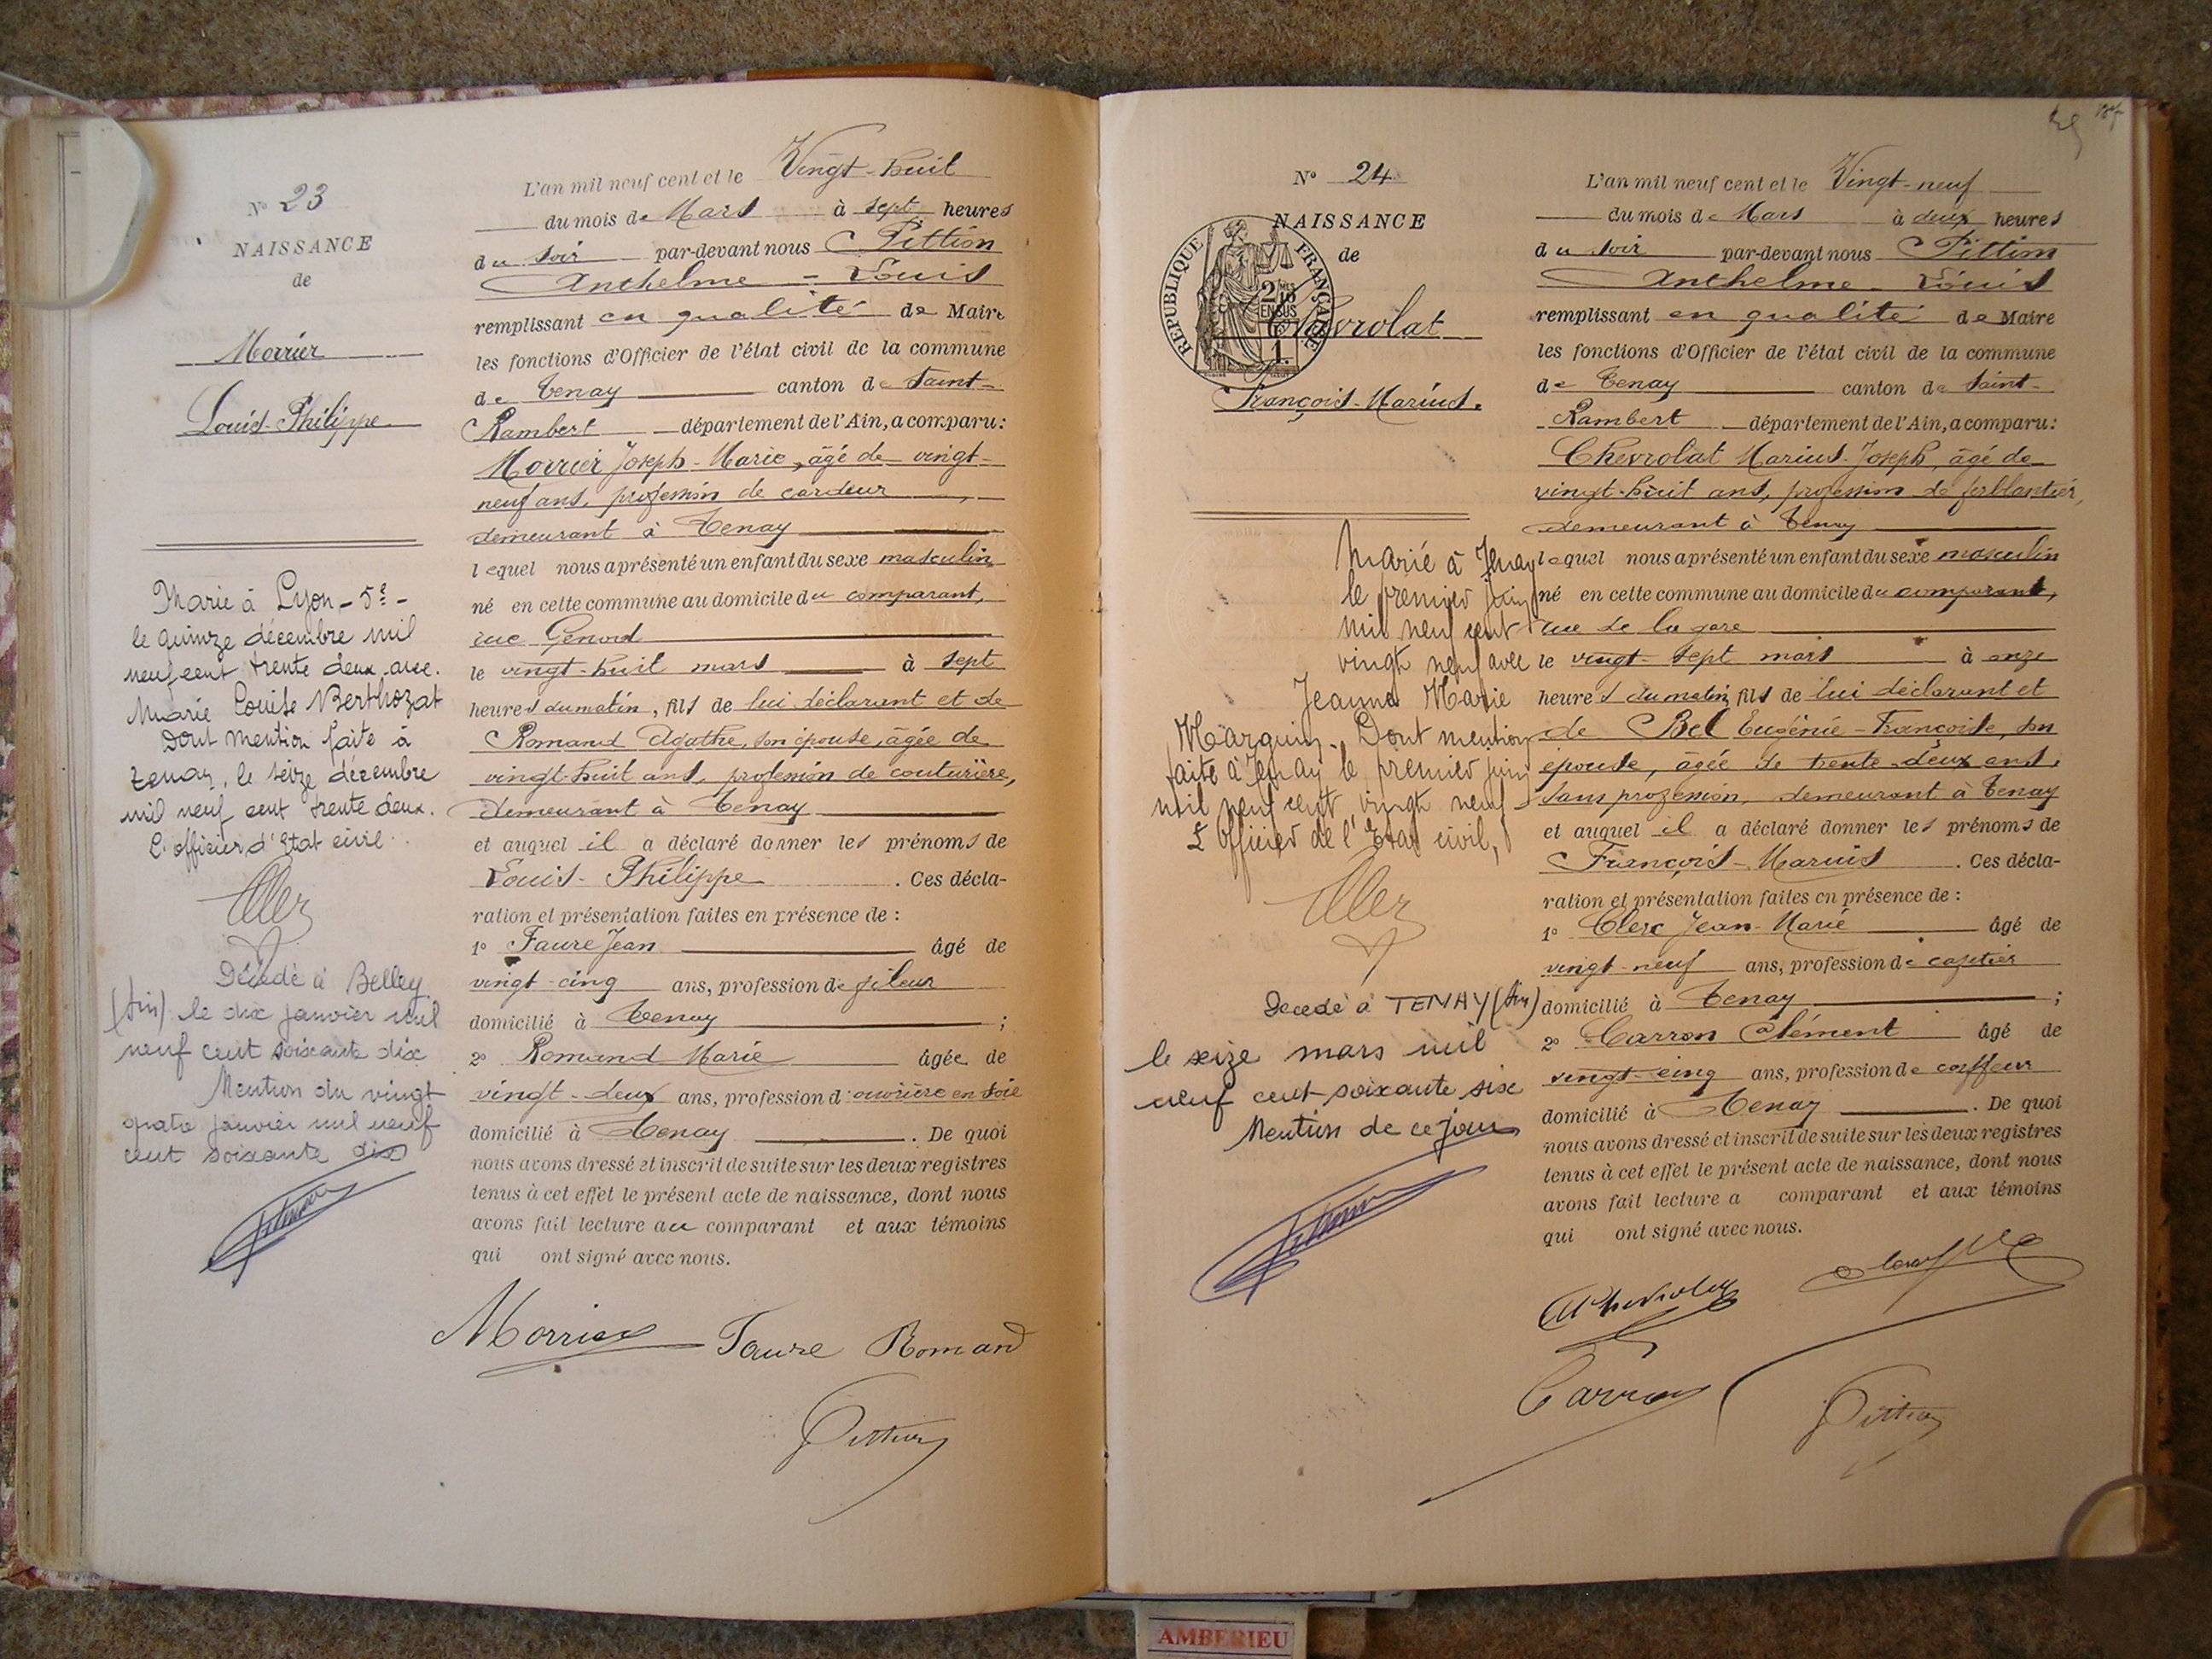 N° 23
NAISSANCE
de
Morrier
Louis-Philippe
Marié à Lyon - 5e -
le quinze décembre mil
neuf cent trente deux avec
Marie Louise Berthozat
Dont mention faite à
Tenay, le seize décembre
mil neuf cent trente deux.
L'officier d'Etat civil.
Décédé à Belley
(Ain) le dix janvier mil
neuf cent soixante dix
Mention du vingt
quatre janvier mil neuf
cent soixante dix
L'an mil neuf cent et le Vingt-huit
du mois de Mars à sept heures
du soir par-devant nous Pittion
Anthelme - Louis
remplissant en qualité de Maire
les fonctions d'Officier de l'état civil de la commune
de Tenay canton de Saint-
Rambert département de l'Ain, a comparu:
Morrier Joseph-Marie, âgé de vingt-
neuf ans, profession de cardeur,
demeurant à Tenay
lequel nous a présenté un enfant du sexe masculin
né en cette commune au domicile du comparant,
rue Genod
le vingt-huit mars à sept
heures du matin, fils de lui déclarant et de
Romand Agathe, son épouse, âgée de
vingt-huit ans, profession de couturière,
demeurant à Tenay
et auquel il a déclaré donner les prénoms de
Louis-Philippe. Ces décla-
ration et présentation faites en présence de :
1° Faure Jean âgé de
vingt-cinq ans, profession de fileur
domicilié à Tenay ;
2° Romand Marie âgée de
vingt-deux ans, profession d'ouvrière en soie
domicilié à Tenay. De quoi
nous avons dressé et inscrit de suite sur les deux registres
tenus à cet effet le présent acte de naissance, dont nous
avons fait lecture au comparant et aux témoins
qui ont signé avec nous.
Morrier Faure Romand
Pittion
N° 24
NAISSANCE
de
REPUBLIQUE FRANÇAISE
2/10 EN SUS
Chevrolat
François-Marius.
Marié à Tenay
le premier juin
mil neuf cent
vingt neuf avec
Jeanne Marie
Marquis. Dont mention
faite à Tenay le premier juin
mil neuf cent vingt neuf
L'Officier de l'Etat civil,
Décédé à TENAY (Ain)
le seize mars mil
neuf cent soixante six
Mention de ce jour
L'an mil neuf cent et le Vingt-neuf
du mois de Mars à deux heures
du soir par-devant nous Pittion
Anthelme - Louis
remplissant en qualité de Maire
les fonctions d'Officier de l'état civil de la commune
de Tenay canton de Saint-
Rambert département de l'Ain, a comparu:
Chevrolat Marius-Joseph, âgé de
vingt-huit ans, profession de ferblantier,
demeurant à Tenay
lequel nous a présenté un enfant du sexe masculin
né en cette commune au domicile du comparant,
rue de la gare
le vingt-sept mars à onze
heures du matin, fils de lui déclarant et
de Bel Eugénie-Françoise, son
épouse, âgée de trente-deux ans,
sans profession, demeurant à Tenay
et auquel il a déclaré donner les prénoms de
François-Marius. Ces décla-
ration et présentation faites en présence de :
1° Clerc Jean-Marie âgé de
vingt-neuf ans, profession de cafetier
domicilié à Tenay ;
2° Carron Clément âgé de
vingt-cinq ans, profession de coiffeur
domicilié à Tenay. De quoi
nous avons dressé et inscrit de suite sur les deux registres
tenus à cet effet le présent acte de naissance, dont nous
avons fait lecture a comparant et aux témoins
qui ont signé avec nous.
Chevrolat
Carron
Pittion
AMBERIEU